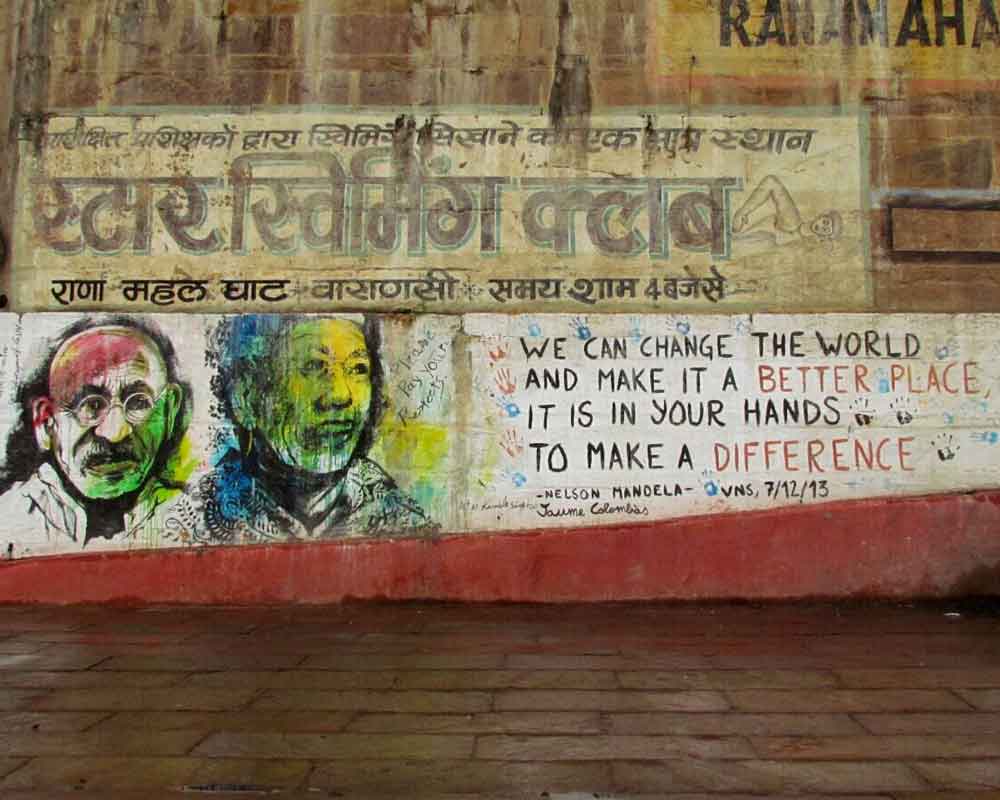 RANA MAHA
प्रशिक्षित प्रशिक्षकों द्वारा स्विमिंग सिखाने का एक मात्र स्थान
स्टार स्विमिंग क्लब
राणा महल घाट वाराणसी समय शाम 4 बजे से
Please
Pay Your
Respects
WE CAN CHANGE THE WORLD
AND MAKE IT A BETTER PLACE,
IT IS IN YOUR HANDS
TO MAKE A DIFFERENCE
-NELSON MANDELA- VNS, 7/12/13
Jaume Colombàs